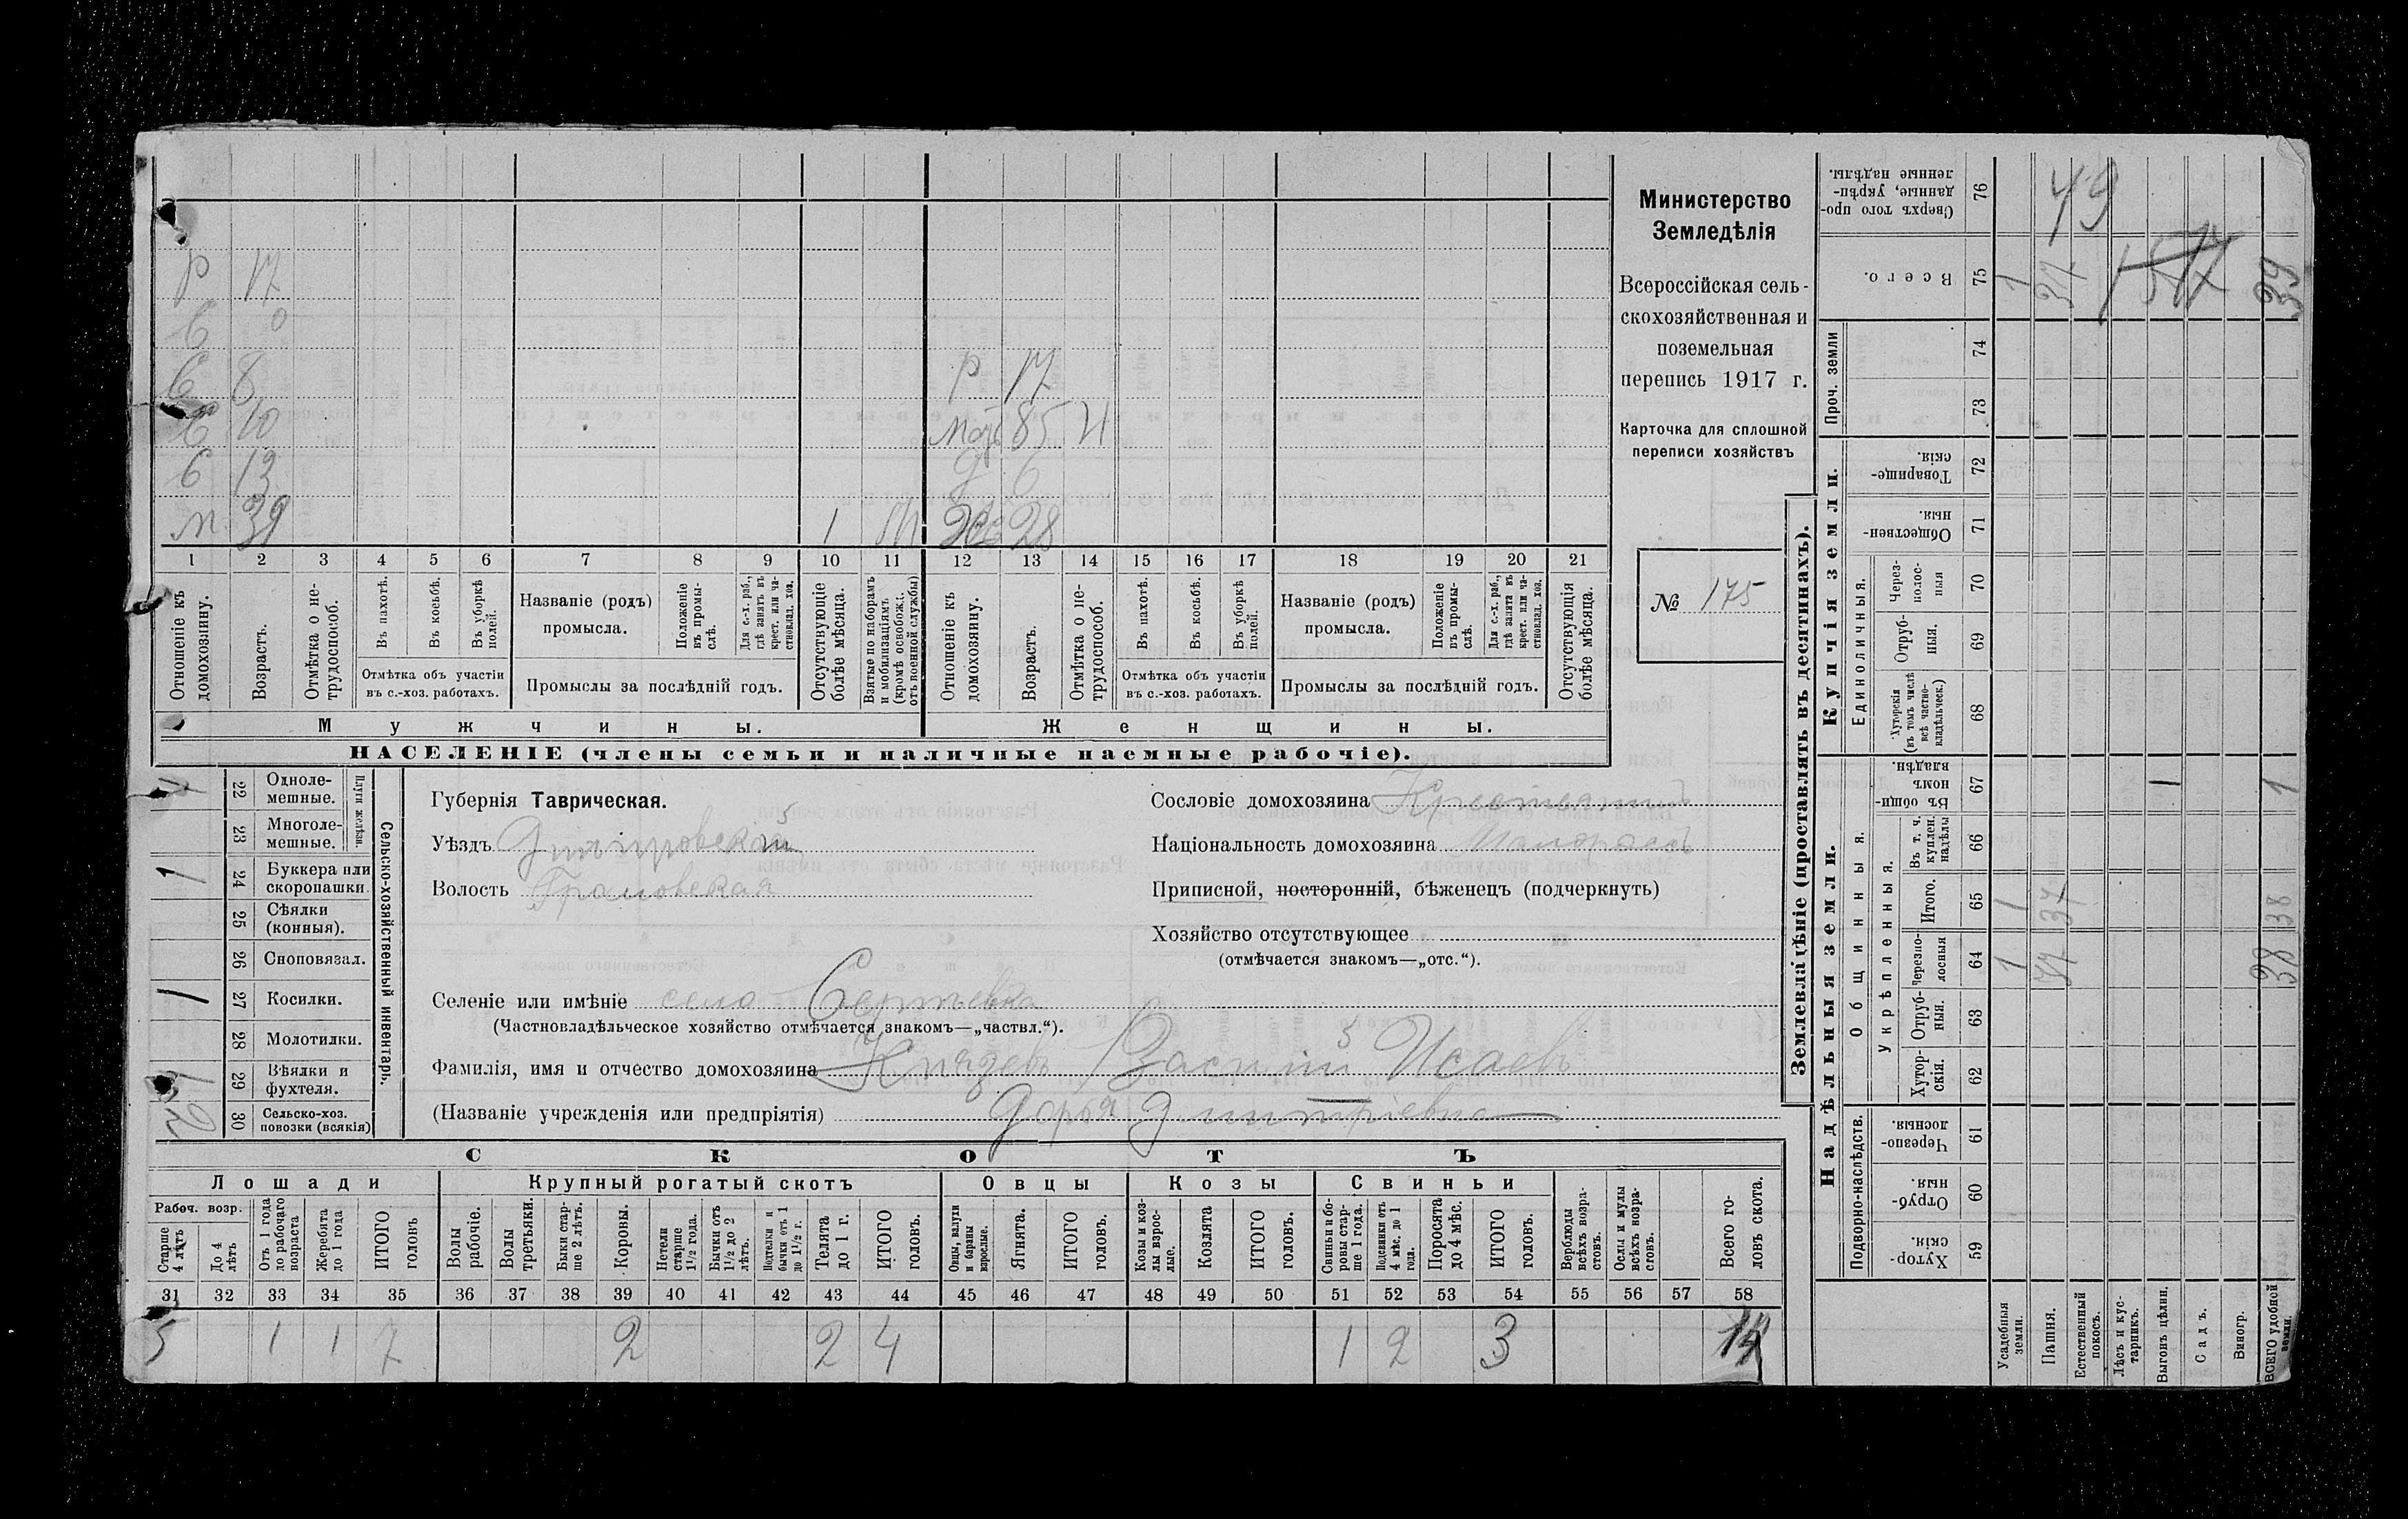 р 17
с 8
с 10
с 13
м 39
р 17
85 Н
д 6
28
1
1 2 3 4 5 6 7 8 9 10 11 12 13 14 15 16 17 18 19 20 21
Отношеніе къ домохозяину.
Возрастъ.
Отмѣтка о нетрудоспособ.
Въ пахотѣ.
Въ косьбѣ.
Въ уборкѣ полей.
Отмѣтка объ участіи
въ с.-хоз. работахъ.
Названіе (родъ)
промысла.
Положеніе въ промыслѣ.
Для с.-х. раб., гдѣ занятъ въ крест. или частновлад. хоз.
Промыслы за послѣдній годъ.
Отсутствующіе болѣе мѣсяца.
Взятые по наборамъ и мобилизаціямъ (кромѣ освобожд. отъ военной службы)
Отношеніе къ домохозяину.
Возрастъ.
Отмѣтка о нетрудоспособ.
Въ пахотѣ.
Въ косьбѣ.
Въ уборкѣ полей.
Отмѣтка объ участіи
въ с.-хоз. работахъ.
Названіе (родъ)
промысла.
Положеніе въ промыслѣ.
Для с.-х. раб., гдѣ занята въ крест. или частновлад. хоз.
Промыслы за послѣдній годъ.
Отсутствующія болѣе мѣсяца.
Мужчины.
Женщины.
НАСЕЛЕНІЕ (члены семьи и наличные наемные рабочіе).
Министерство
Земледѣлія
Всероссійская сель-
скохозяйственная и
поземельная
перепись 1917 г.
Карточка для сплошной
переписи хозяйствъ
№ 175
Сельско-хозяйственный инвентарь.
Плуги желѣзн.
22 Одноле-
мешные.
23 Многоле-
мешные.
1 24 Буккера или
скоропашки.
25 Сѣялки
(конныя).
26 Сноповязал.
1 27 Косилки.
28 Молотилки.
29 Вѣялки и
фухтеля.
30 Сельско-хоз.
повозки (всякія)
Губернія Таврическая.
Уѣздъ Днѣпровскій
Волость
Селеніе или имѣніе село Сергѣевка
(Частновладѣльческое хозяйство отмѣчается знакомъ—„частвл.“).
Фамилія, имя и отчество домохозяина Князевъ Василій Исаевъ
(Названіе учрежденія или предпріятія) Дарья Дмитріевна
Сословіе домохозяина Крестьянинъ
Національность домохозяина Малороссъ
Приписной, посторонній, бѣженецъ (подчеркнуть)
Хозяйство отсутствующее
(отмѣчается знакомъ—„отс.“).
СКОТЪ
Лошади
Крупный рогатый скотъ
Овцы
Козы
Свиньи
Рабоч. возр.
Старше 4 лѣтъ
До 4 лѣтъ
Отъ 1 года до рабочаго возраста
Жеребята до 1 года
ИТОГО головъ
Волы рабочіе.
Волы третьяки.
Быки старше 2 лѣтъ.
Коровы.
Нетели старше 1½ года.
Бычки отъ 1½ до 2 лѣтъ.
Подтелки и бычки отъ 1 до 1½ г.
Телята до 1 г.
ИТОГО головъ.
Овцы, валухи и бараны взрослые.
Ягнята.
ИТОГО головъ.
Козы и козлы взрослые.
Козлята
ИТОГО головъ.
Свиньи и боровы старше 1 года.
Подсвинки отъ 4 мѣс. до 1 года.
Поросята до 4 мѣс.
ИТОГО головъ.
Верблюды всѣхъ возрастовъ.
Ослы и мулы всѣхъ возрастовъ.
Всего головъ скота.
31 32 33 34 35 36 37 38 39 40 41 42 43 44 45 46 47 48 49 50 51 52 53 54 55 56 57 58
5 1 1 7 2 2 4 1 2 3 14
Землевладѣніе (проставлять въ десятинахъ).
Надѣльныя земли.
Купчія земли.
Проч. земли
Подворно-наслѣдств.
Общинныя.
Укрѣпленныя.
Единоличныя.
Сверхъ того проданные, укрѣпленные надѣлы. 76
Всего. 75
74
73
Товарищескія. 72
Общественныя. 71
Черезполосныя 70
Отрубныя. 69
Хуторскія (въ томъ числѣ всѣ частновладѣльческ.) 68
Въ общинномъ владѣн. 67
Въ т. ч. куплен. надѣлы 66
Итого. 65
Черезполосныя 64
Отрубныя. 63
Хуторскія. 62
Черезполосныя 61
Отрубныя. 60
Хуторскія. 59
Усадебныя земли. 1 1 1
Пашня. 37 37 37 49
Естественный покосъ.
Лѣсъ и кустарникъ.
Выгонъ цѣлин. 1
Садъ.
Виногр.
ВСЕГО удобной земли. 38 38 1 39